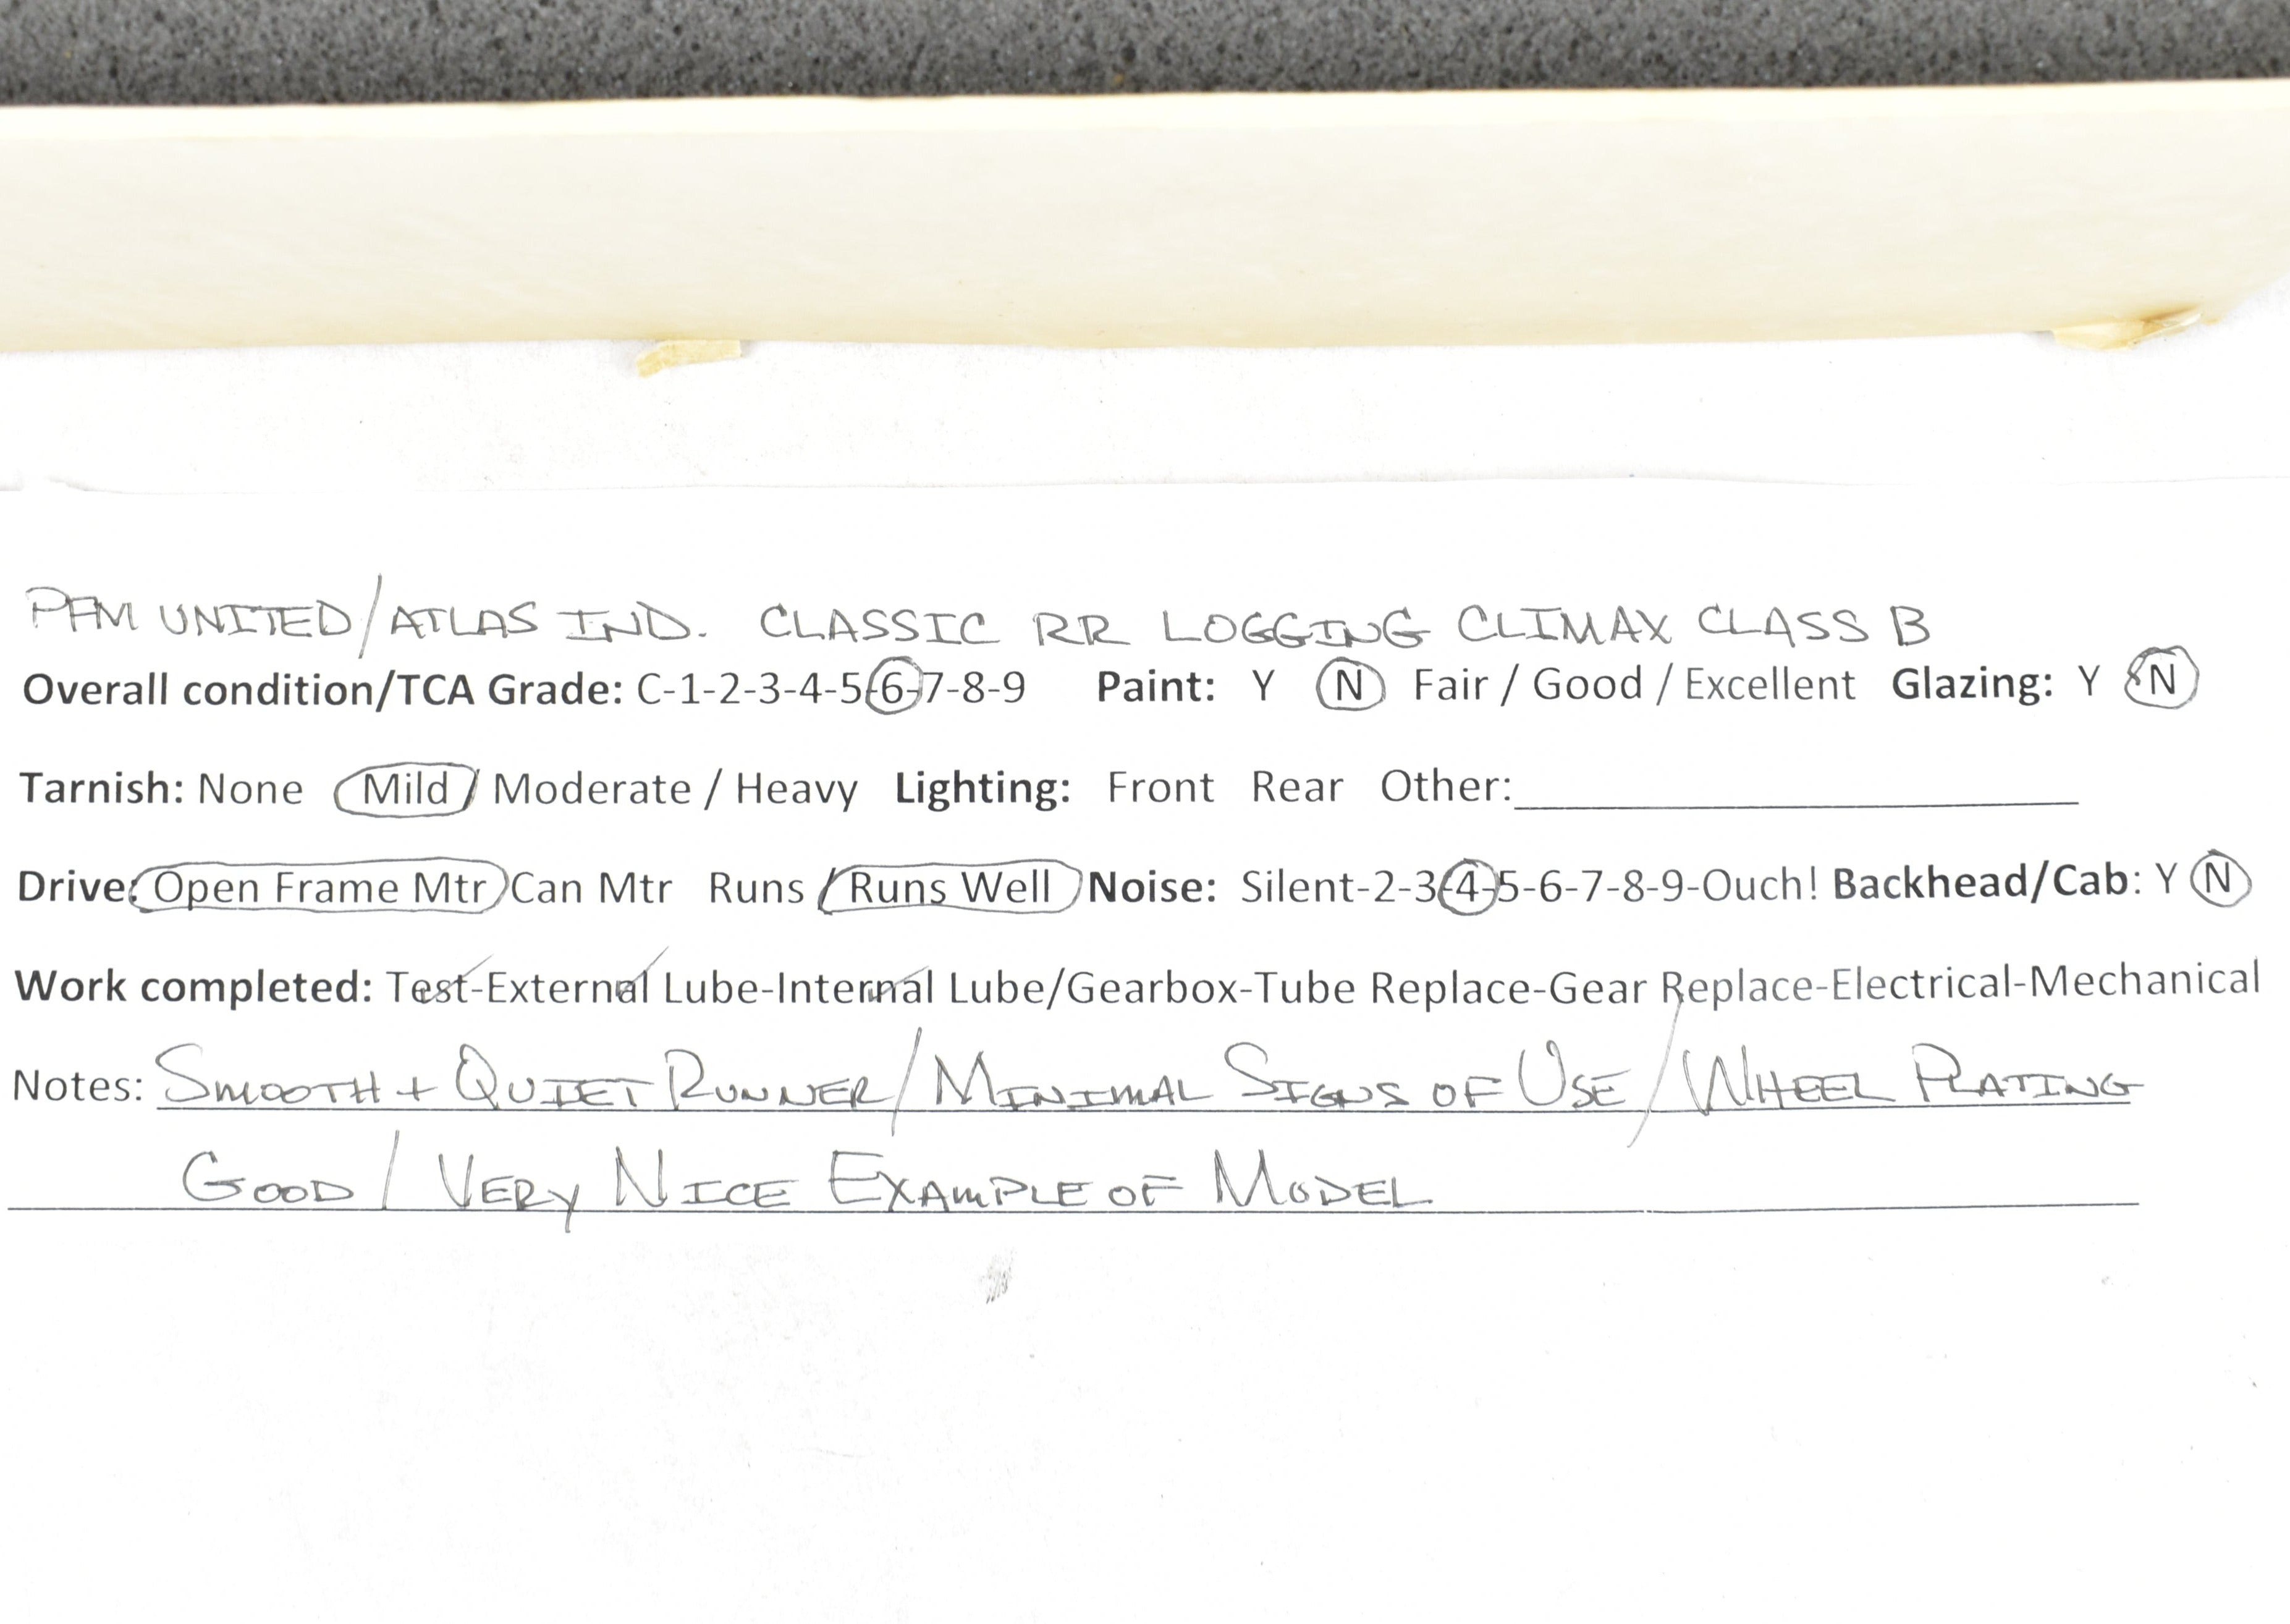 PFM UNITED/ATLAS IND. CLASSIC RR LOGGING CLIMAX CLASS B
Overall condition/TCA Grade: C-1-2-3-4-5-6-7-8-9 Paint: Y N Fair / Good / Excellent Glazing: Y N
Tarnish: None Mild / Moderate / Heavy Lighting: Front Rear Other:
Drive: Open Frame Mtr Can Mtr Runs / Runs Well Noise: Silent-2-3-4-5-6-7-8-9-Ouch! Backhead/Cab: Y N
Work completed: Test-External Lube-Internal Lube/Gearbox-Tube Replace-Gear Replace-Electrical-Mechanical
Notes: SMOOTH + QUIET RUNNER/MINIMAL SIGNS OF USE/WHEEL PLATING
GOOD/VERY NICE EXAMPLE OF MODEL